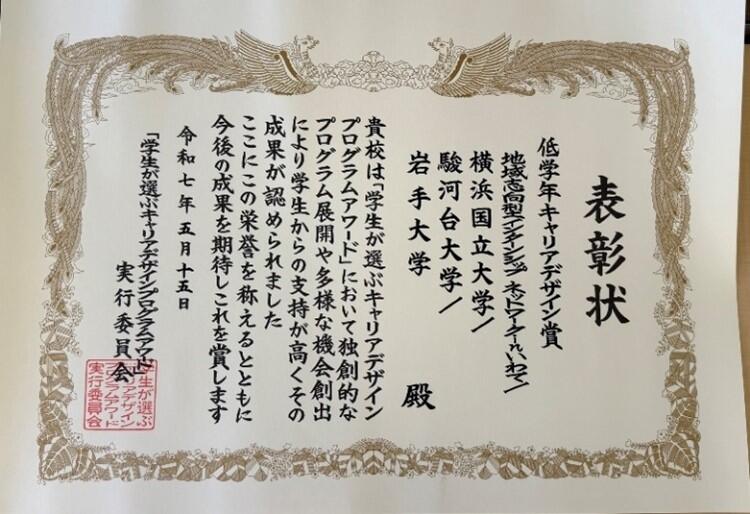 表彰状
低学年キャリアデザイン賞
地域志向型インターンシップ ネットワークinいわて/
横浜国立大学/
駿河台大学/
岩手大学
殿
貴校は「学生が選ぶキャリアデザイン
プログラムアワード」において独創的な
プログラム展開や多様な機会創出
により学生からの支持が高くその
成果が認められました
ここにこの栄誉を称えるとともに
今後の成果を期待しこれを賞します
令和七年五月十五日
「学生が選ぶキャリアデザインプログラムアワード」
実行委員会
学生が選ぶ
キャリアデザイン
プログラムアワード
実行委員会